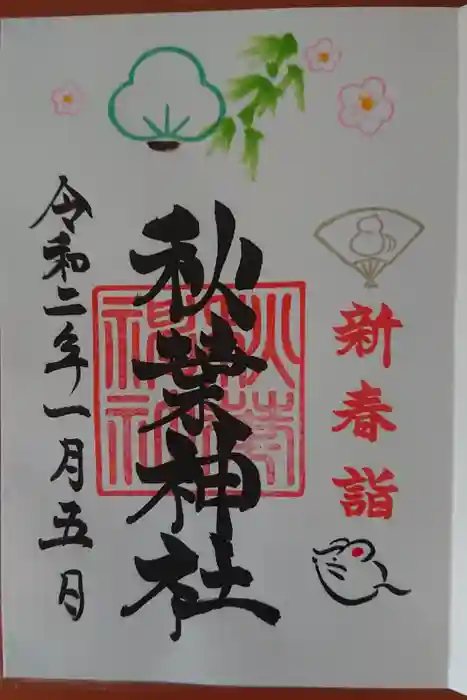 新春詣
秋葉神社
令和二年一月五日
秋葉神社